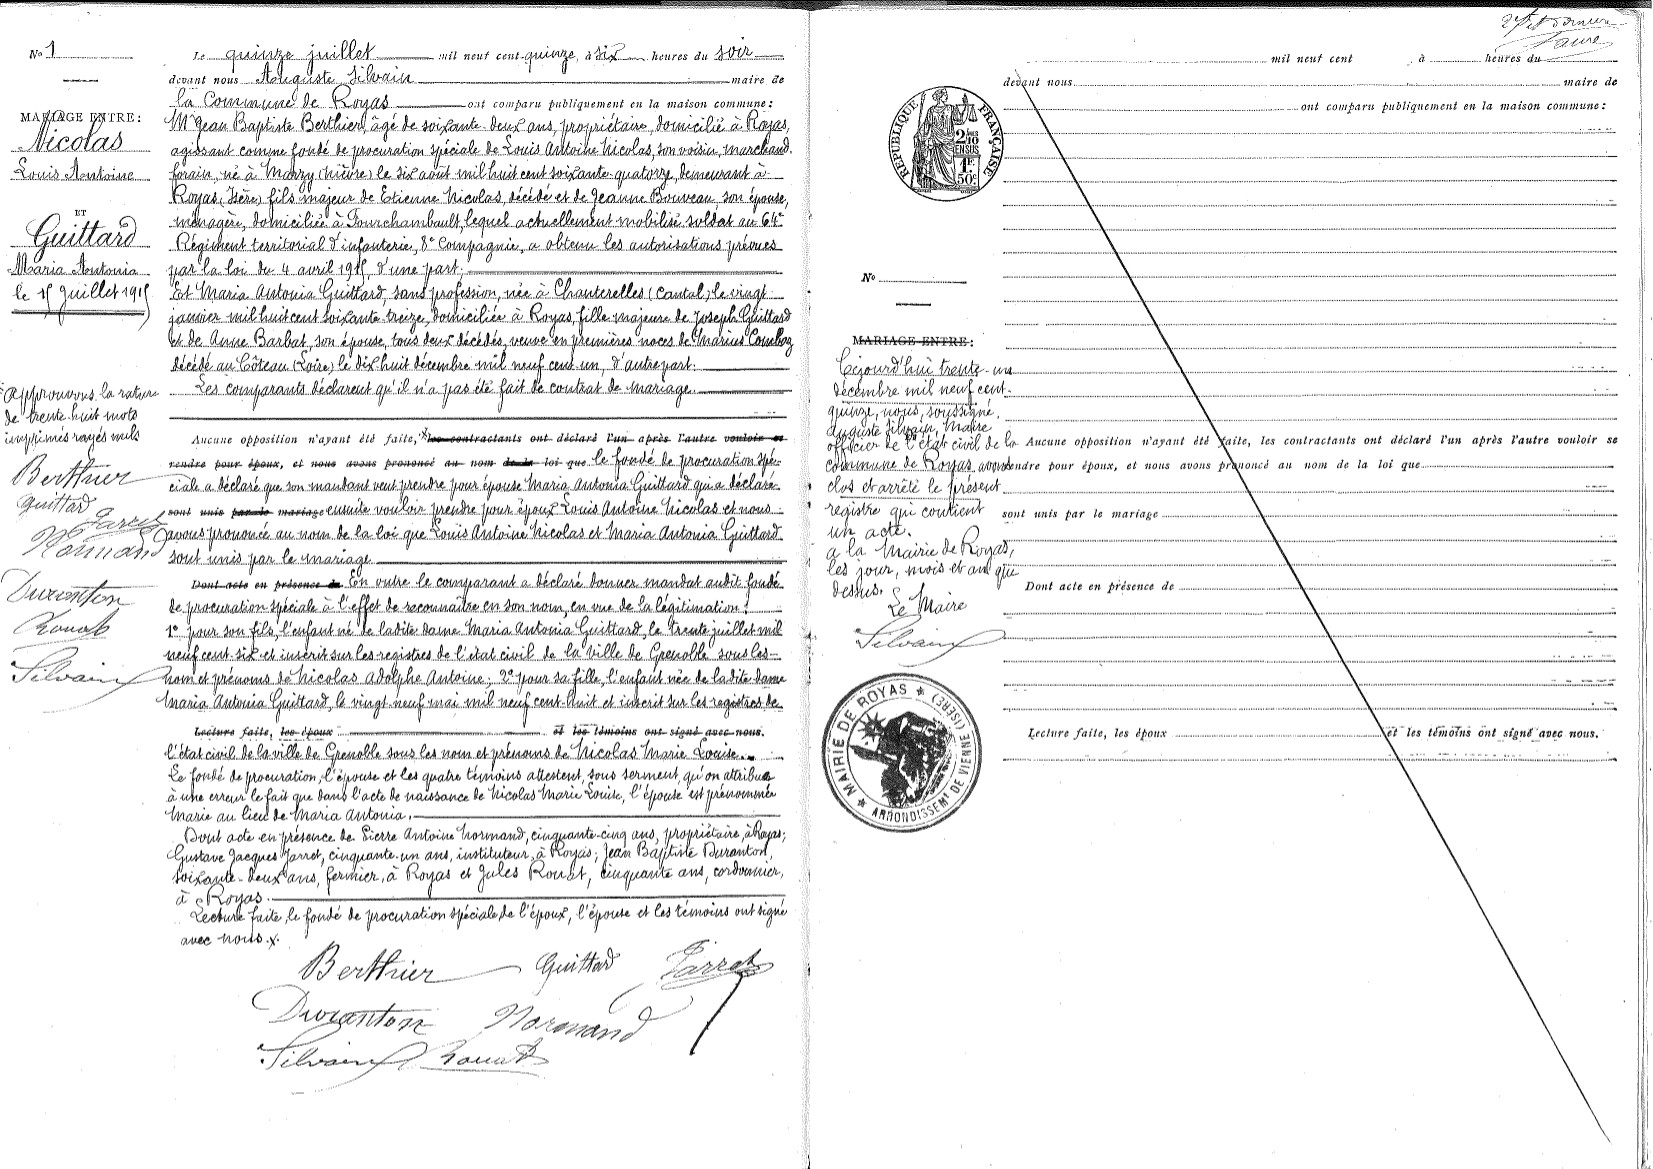 No 1
MARIAGE ENTRE:
Nicolas
Louis Antoine
ET
Guittard
Maria Antonia
le 15 Juillet 1915
Approuvons la rature
de trente huit mots
imprimés rayés nuls
Berthier
Guittard
Jarret
Normand
Duranton
Rouat
Silvain
Le quinze juillet mil neuf cent quinze, à six heures du soir
devant nous Auguste Silvain maire de
la Commune de Royas ont comparu publiquement en la maison commune:
Mr Jean Baptiste Berthier, âgé de soixante-deux ans, propriétaire, domicilié à Royas,
agissant comme fondé de procuration spéciale de Louis Antoine Nicolas, son voisin, marchand
forain, né à Marzy (Nièvre) le six août mil huit cent soixante-quatorze, demeurant à
Royas (Isère) fils majeur de Etienne Nicolas, décédé et de Jeanne Bouveau, son épouse,
ménagère, domiciliée à Fourchambault, lequel actuellement mobilisé soldat au 64e
Régiment territorial d'infanterie, 8e Compagnie, a obtenu les autorisations prévues
par la loi du 4 avril 1915, d'une part;
Et Maria Antonia Guittard, sans profession, née à Chanterelles (Cantal) le vingt
janvier mil huit cent soixante treize, domiciliée à Royas, fille majeure de Joseph Guittard
et de Anne Barbat, son épouse, tous deux décédés, veuve en premières noces de Marius
décédé au Côteau (Loire) le dix huit décembre mil neuf cent un, d'autre part.
Les comparants déclarent qu'il n'a pas été fait de contrat de mariage.
Aucune opposition n'ayant été faite, x les contractants ont déclaré l'un après l'autre vouloir se
rendre pour époux, et nous avons prononcé au nom de la loi que le fondé de procuration spé-
ciale a déclaré que son mandant veut prendre pour épouse Maria Antonia Guittard qui a déclaré
sont unis par le mariage ensuite vouloir prendre pour époux Louis Antoine Nicolas et nous
avons prononcé au nom de la loi que Louis Antoine Nicolas et Maria Antonia Guittard
sont unis par le mariage
Dont acte en présence de En outre le comparant a déclaré donner mandat audit fondé
de procuration spéciale à l'effet de reconnaître en son nom, en vue de la légitimation:
1o pour son fils, l'enfant né de ladite dame Maria Antonia Guittard, le trente juillet mil
neuf cent six et inscrit sur les registres de l'état civil de la ville de Grenoble sous les
nom et prénoms de Nicolas Adolphe Antoine; 2o pour sa fille, l'enfant née de ladite dame
Maria Antonia Guittard, le vingt neuf mai mil neuf cent huit et inscrit sur les registres de
Lecture faite, les époux et les témoins ont signé avec nous.
l'état civil de la ville de Grenoble sous les nom et prénoms de Nicolas Marie Louise.
Le fondé de procuration, l'épouse et les quatre témoins attestent, sous serment, qu'on attribue
à une erreur le fait que dans l'acte de naissance de Nicolas Marie Louise, l'épouse est prénommée
Marie au lieu de Maria Antonia.
Dont acte en présence de Pierre Antoine Normand, cinquante-cinq ans, propriétaire, à Royas;
Gustave Jacques Jarret, cinquante-un ans, instituteur, à Royas; Jean Baptiste Duranton,
soixante-deux ans, fermier, à Royas et Jules Rouat, cinquante ans, cordonnier,
à Royas.
Lecture faite, le fondé de procuration spéciale de l'époux, l'épouse et les témoins ont signé
avec nous. x.
Berthier Guittard Jarret
Duranton Normand
Silvain Rouat
Faure
mil neuf cent à heures du
devant nous maire de
ont comparu publiquement en la maison commune:
RÉPUBLIQUE FRANÇAISE
2/10
EN SUS
1F
50c
No
MARIAGE ENTRE:
Cejourd'hui trente-un
décembre mil neuf cent
quinze, nous, soussigné,
Auguste Silvain, Maire
officier de l'état civil de la
commune de Royas avons
clos et arrêté le présent
registre qui contient
un acte.
A la Mairie de Royas,
les jour, mois et an que
dessus.
Le Maire
Silvain
MAIRIE DE ROYAS (ISÈRE)
ARRONDISSEMt DE VIENNE
Aucune opposition n'ayant été faite, les contractants ont déclaré l'un après l'autre vouloir se
rendre pour époux, et nous avons prononcé au nom de la loi que
sont unis par le mariage
Dont acte en présence de
Lecture faite, les époux et les témoins ont signé avec nous.